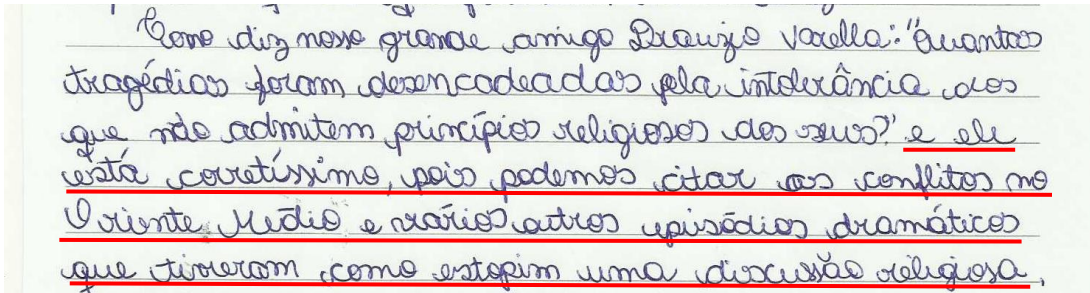 Como diz nosso grande amigo Drauzio Varella: "Quantas
tragédias foram desencadeadas pela intolerância dos
que não admitem princípios religiosos dos seus?" e ele
está corretíssimo, pois podemos citar os conflitos no
Oriente Médio e vários outros episódios dramáticos
que tiveram como estopim uma discussão religiosa.